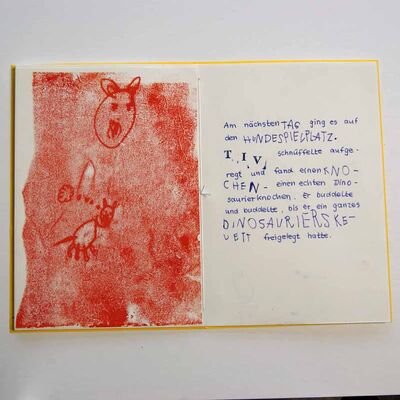 Am nächsten TAG ging es auf
den HUNDESPIELPLATZ.
T. I V. schnüffelte aufge-
regt und fand einen KNO-
CHEN - einen echten Dino-
saurierknochen. Er buddelte
und buddelte, bis er ein ganzes
DINOSAURIERSKE-
LETT freigelegt hatte.